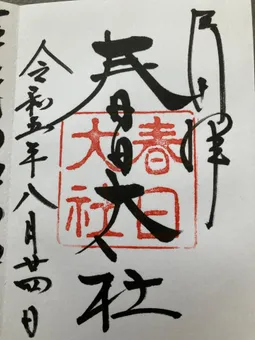 月日拝
春日大社
春日
大社
令和五年八月廿四日